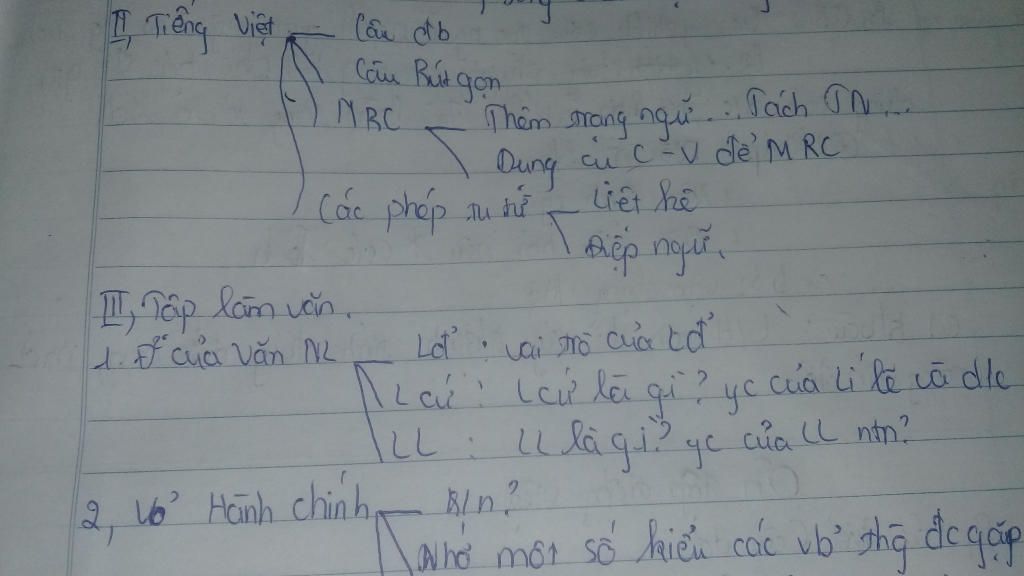 II, Tiếng Việt - Câu đb
Câu Rút gọn
MRC - Thêm trạng ngữ... Tách TN...
Dung cụ C-V để MRC
Các phép tu từ - Liệt kê
Điệp ngữ.
III, Tập làm văn.
1. Đ² của văn NL - Lđ : vai trò của Lđ
L cứ : L cứ là gì? yc của lí lẽ và d/c
LL : LL là gì? yc của LL ntn?
2, Vb Hành chính - K/n?
Nhớ một số kiểu các vb thg đc gặp